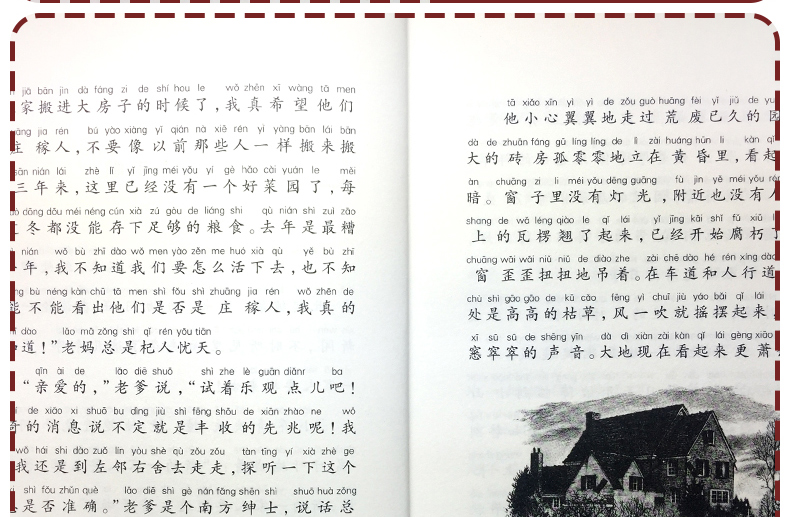 jiā bān jìn dà fáng zi de shí hou le wǒ zhēn xī wàng tā men
家搬进大房子的时候了,我真希望他们
jia rén bú yào xiàng yǐ qián nà xiē rén yí yàng bān lái bān
庄稼人,不要像以前那些人一样搬来搬
sān nián lái zhè lǐ yǐ jīng méi yǒu yí gè hǎo cài yuán le měi
三年来,这里已经没有一个好菜园了,每
dōng dōu méi néng cún xià zú gòu de liáng shi qù nián shì zuì zāo
冬都没能存下足够的粮食。去年是最糟
nián wǒ bù zhī dào wǒ men yào zěn me huó xià qù yě bù zhī
年,我不知道我们要怎么活下去,也不知
bù néng kàn chū tā men shì fǒu shì zhuāng jia rén wǒ zhēn de
能不能看出他们是否是庄稼人,我真的
dào lǎo mā zǒng shì qǐ rén yōu tiān
道!”老妈总是杞人忧天。
qīn ài de lǎo diē shuō shì zhe lè guān diǎnr ba
“亲爱的,”老爹说,“试着乐观点儿吧!
de xiāo xi shuō bu dìng jiù shì fēng shōu de xiān zhào ne wǒ
的消息说不定就是丰收的先兆呢!我
wǒ hái shi dào zuǒ lín yòu shè qù zǒu zǒu tàn tīng yí xià zhè ge
我还是到左邻右舍去走走,探听一下这个
shì fǒu zhǔn què lǎo diē shì gè nán fāng shēn shì shuō huà zǒng
是否准确。”老爹是个南方绅士,说话总
tā xiǎo xīn yì yì de zǒu guò huāng fèi yǐ jiǔ de
他小心翼翼地走过荒废已久的
dà de zhuān fáng gū líng líng de lì zài huáng hūn li kàn qǐ
大的砖房孤零零地立在黄昏里,看起
àn chuāng zi li méi yǒu dēng guāng fù jìn yě méi yǒu rén
暗。窗子里没有灯光,附近也没有人
shang de wǎ léng qiào le qǐ lái yǐ jīng kāi shǐ fǔ xiǔ
上的瓦楞翘了起来,已经开始腐朽了
chuāng wāi wāi niǔ niǔ de diào zhe zài chē dào hé rén xíng dào
窗歪歪扭扭地吊着。在车道和人行道
chù shì gāo gāo de kū cǎo fēng yì chuī jiù yáo bǎi qǐ lái
处是高高的枯草,风一吹就摇摆起来,
xī sū sū de shēng yīn dà dì xiàn zài kàn qǐ lái gèng xiāo
窸窣窣的声音。大地现在看起来更萧